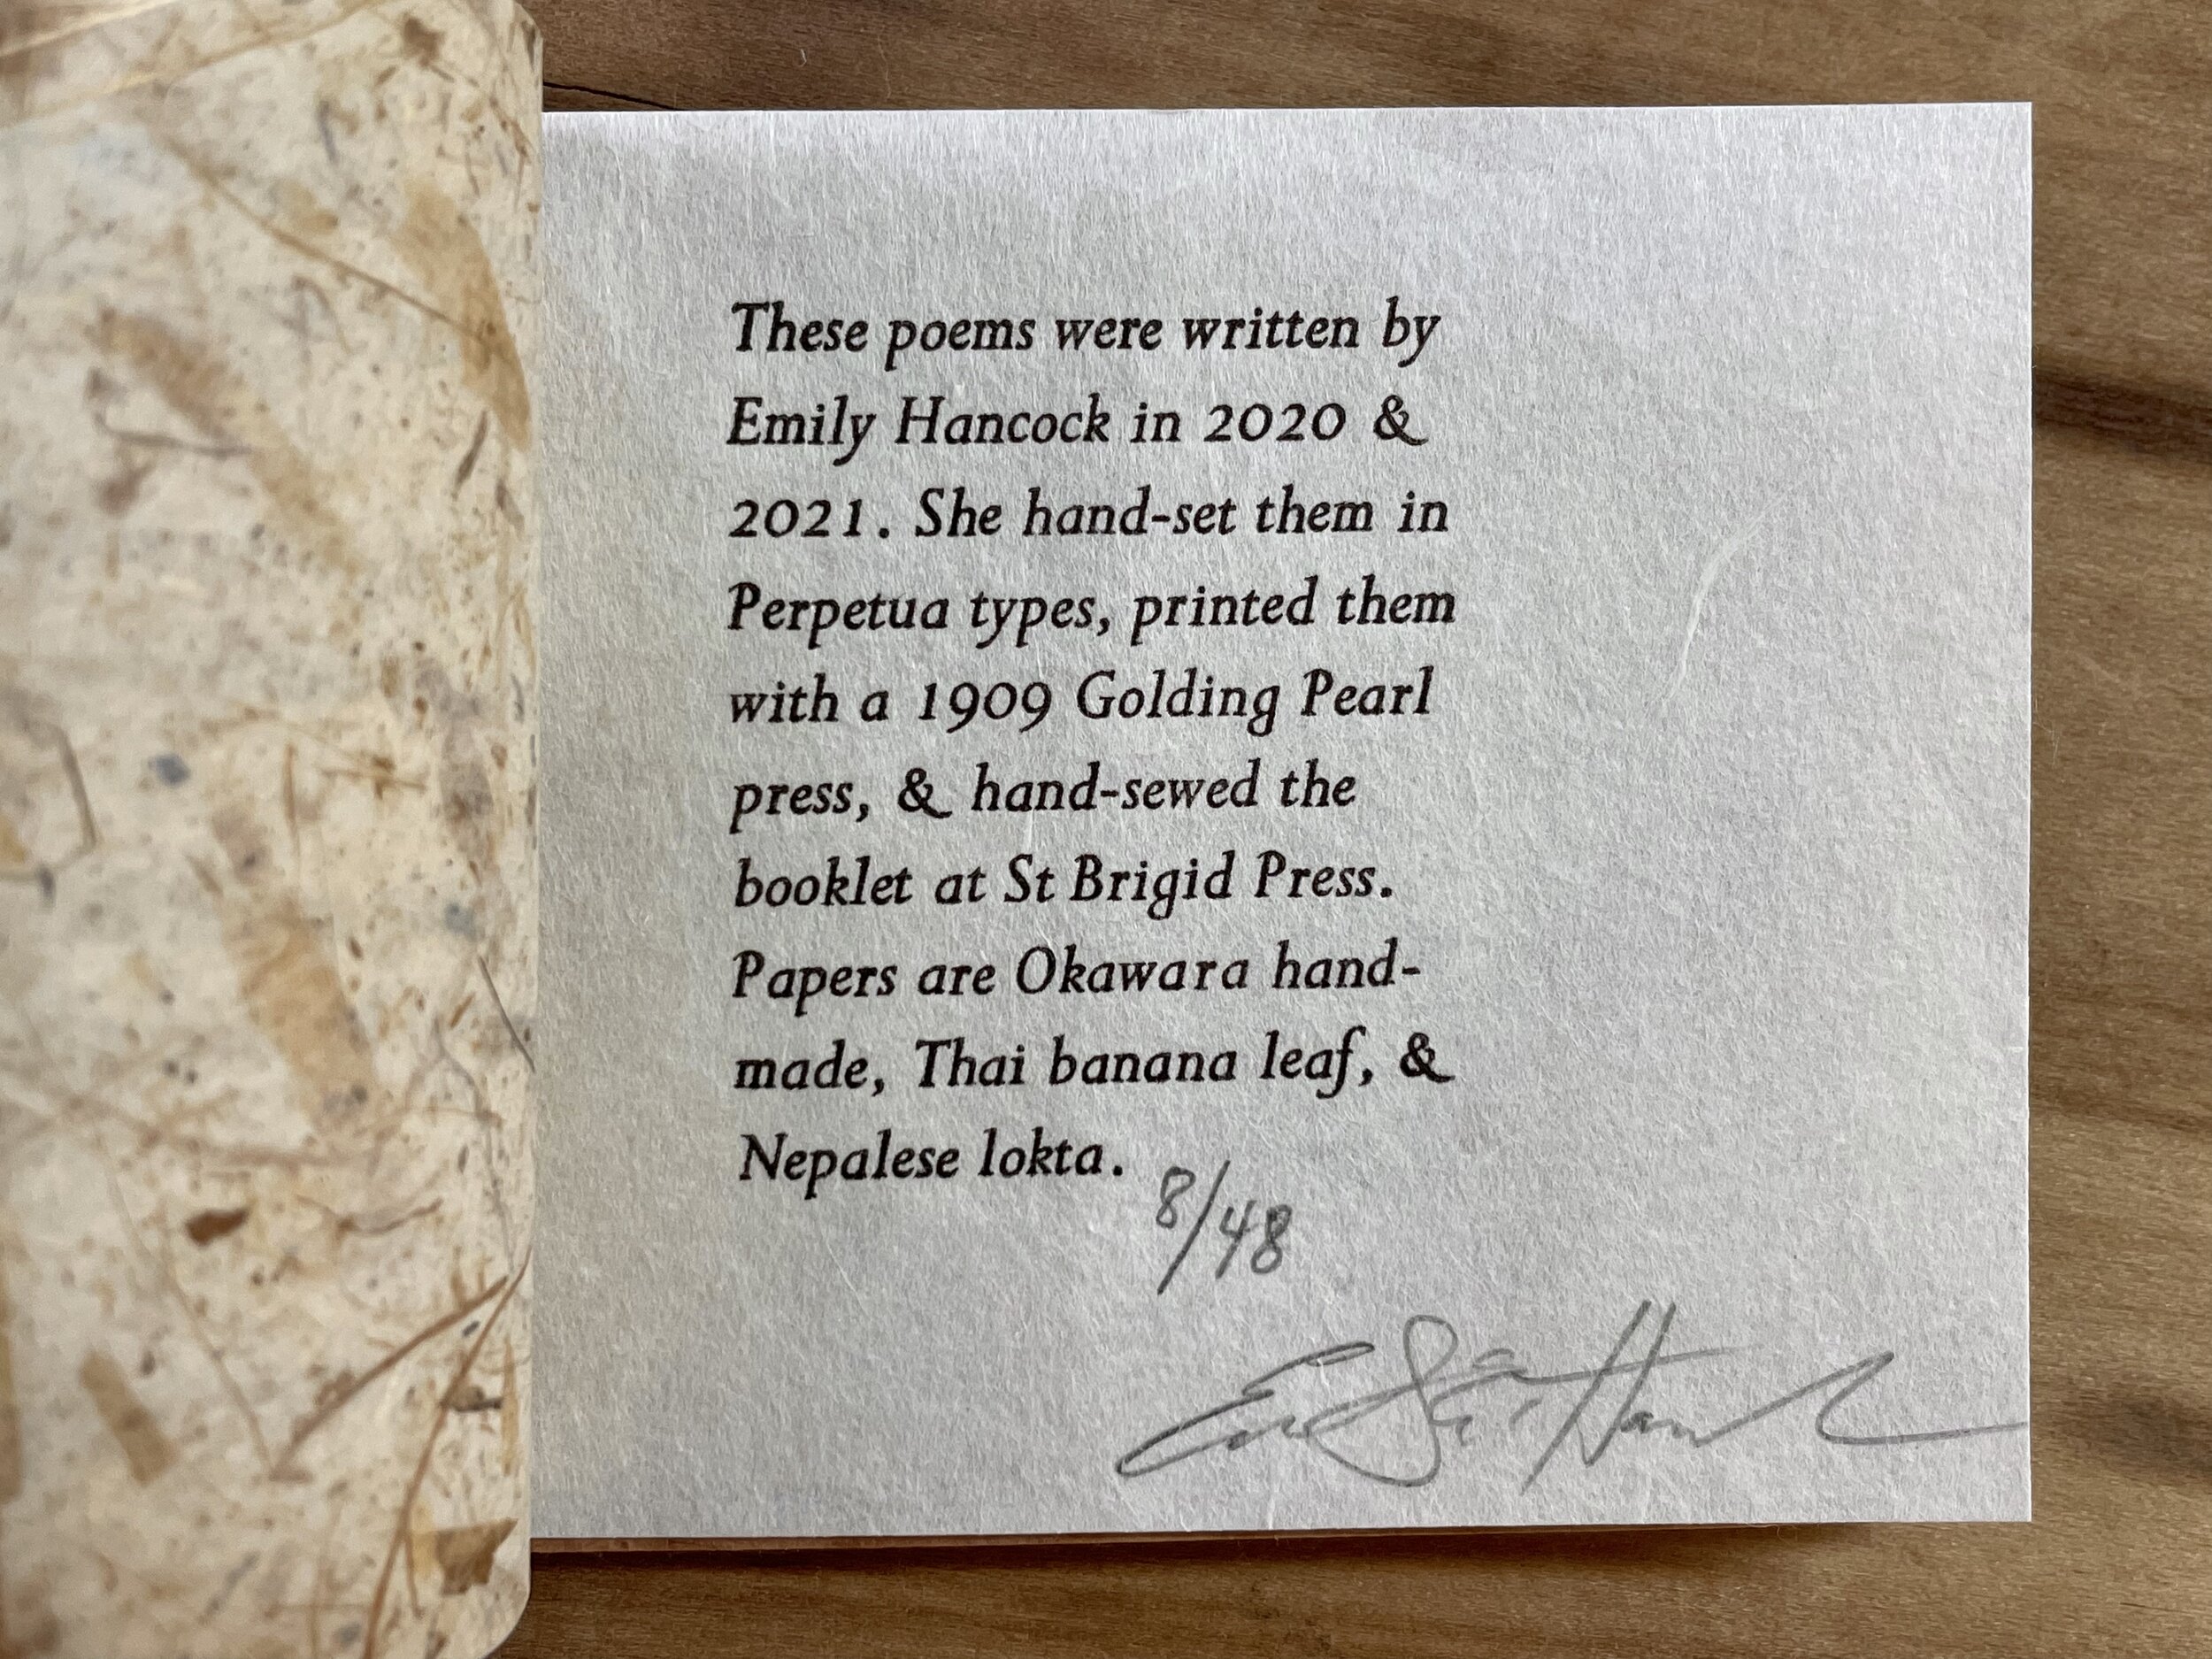 These poems were written by
Emily Hancock in 2020 &
2021. She hand-set them in
Perpetua types, printed them
with a 1909 Golding Pearl
press, & hand-sewed the
booklet at St Brigid Press.
Papers are Okawara hand-
made, Thai banana leaf, &
Nepalese lokta.
8/48